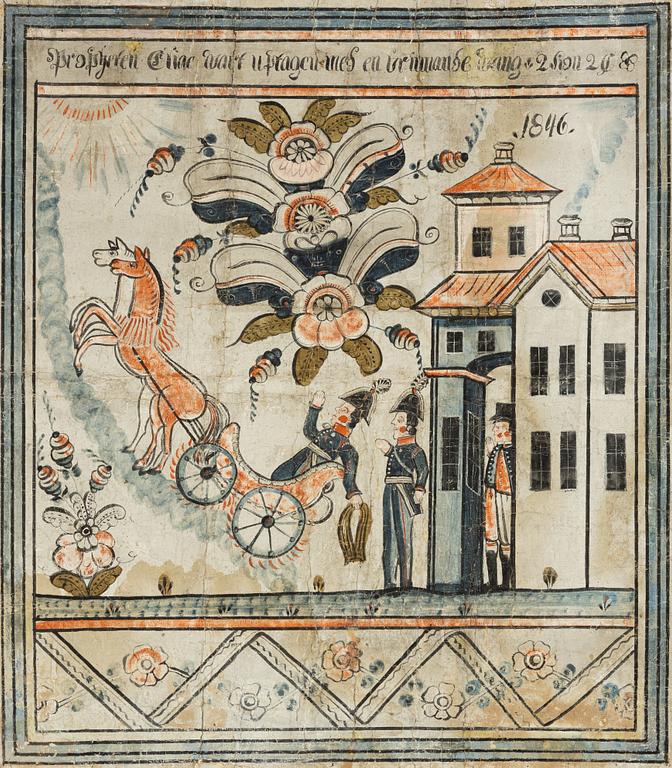 Propheten Elias wart uptagen med en brinnande wang 2 Kon 2 C
1846.